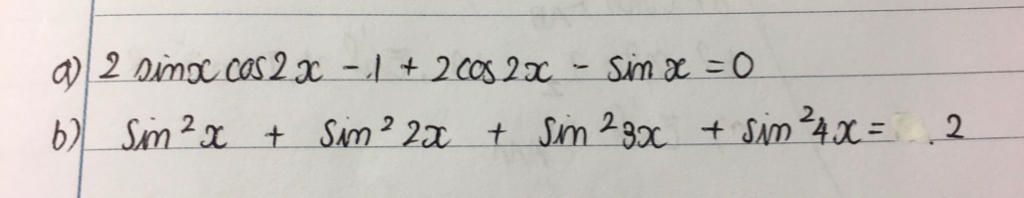 a) 2 sinx cos2x - 1 + 2cos2x - sinx = 0
b) sin²x + sin²2x + sin²3x + sin²4x = 2